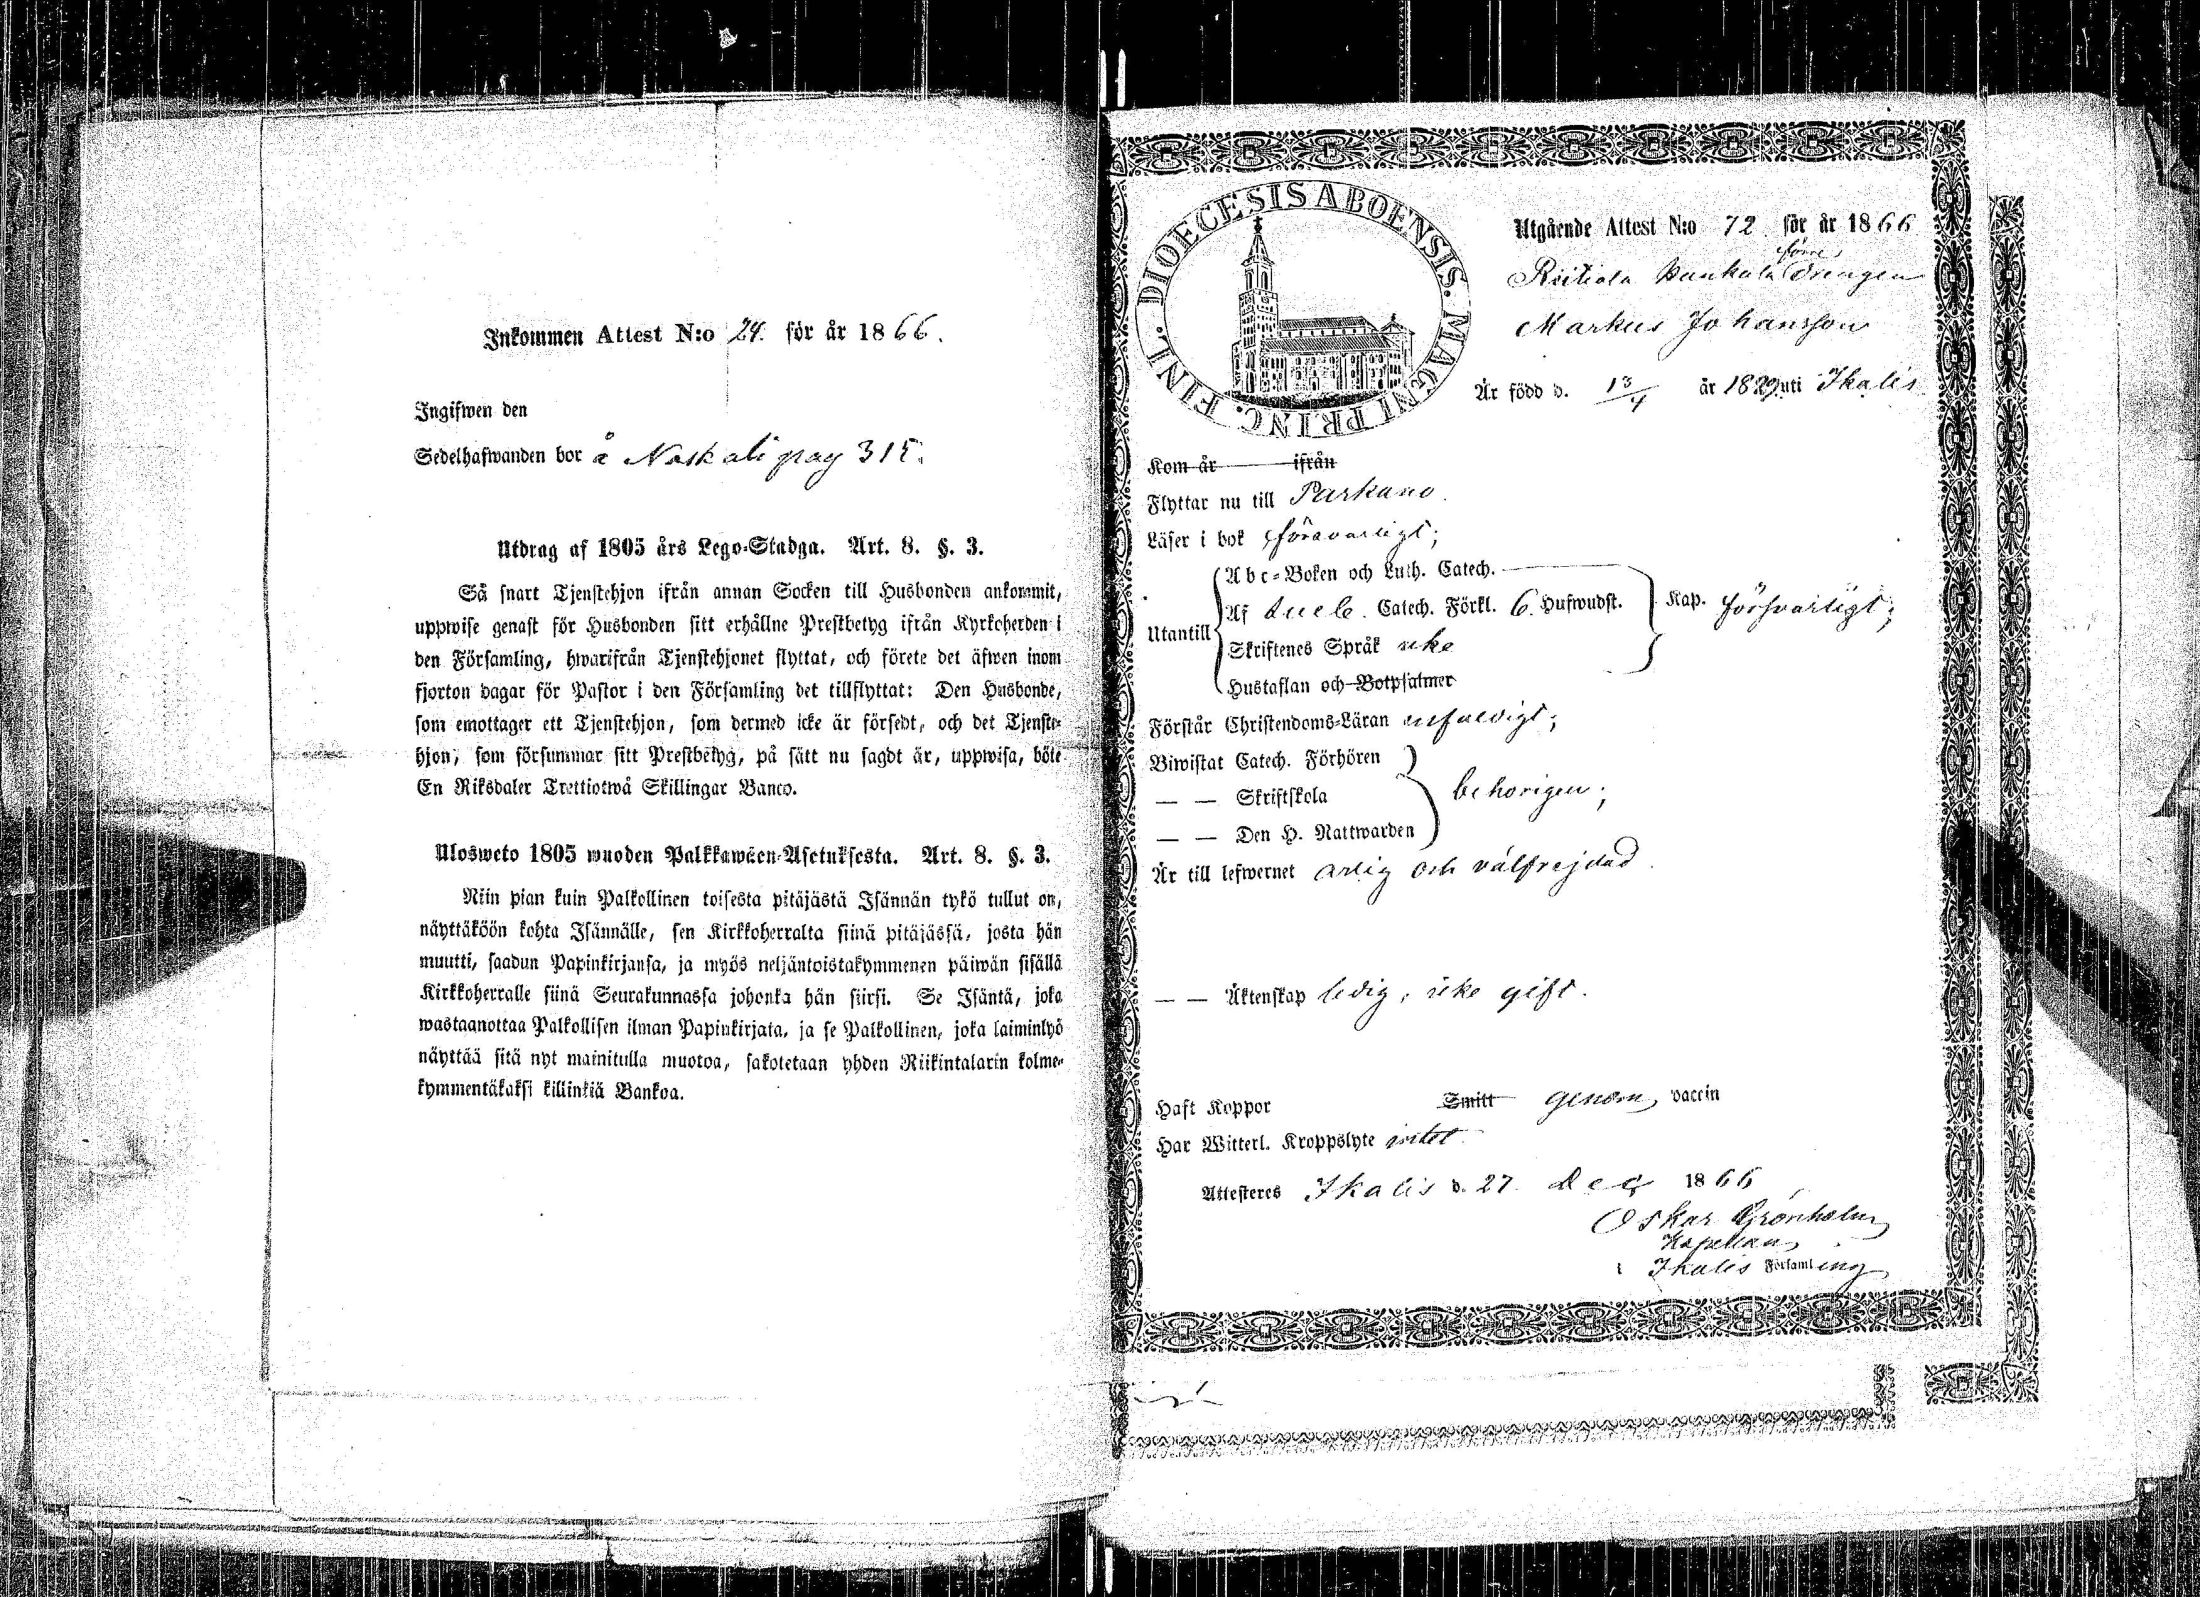 Inkommen Attest N:o 24. för år 1866.
Ingifwen den
Sedelhafwanden bor å Naskali pag 315.
Utdrag af 1805 års Lego-Stadga. Art. 8. §. 3.
Så snart Tjenstehjon ifrån annan Socken till Husbonden ankommit,
uppwise genast för Husbonden sitt erhållne Prestbetyg ifrån Kyrkoherden i
den Församling, hwarifrån Tjenstehjonet flyttat, och förete det äfwen inom
fjorton dagar för Pastor i den Församling det tillflyttat: Den Husbonde,
som emottager ett Tjenstehjon, som dermed icke är försedt, och det Tjenste-
hjon, som försummar sitt Prestbetyg, på sätt nu sagdt är, uppwisa, böte
En Riksdaler Trettiotwå Skillingar Banco.
Ulosweto 1805 wuoden Palkkawäen-Asetuksesta. Art. 8. §. 3.
Niin pian kuin Palkollinen toisesta pitäjästä Isännän tykö tullut on,
näyttäköön kohta Isännälle, sen Kirkkoherralta siinä pitäjässä, josta hän
muutti, saadun Papinkirjansa, ja myös neljäntoistakymmenen päiwän sisällä
Kirkkoherralle siinä Seurakunnassa johonka hän siirsi. Se Isäntä, joka
wastaanottaa Palkollisen ilman Papinkirjata, ja se Palkollinen, joka laiminlyö
näyttää sitä nyt mainitulla muotoa, sakotetaan yhden Riikintalarin kolme-
kymmentäkaksi killinkiä Bankoa.
DIOECESIS ABOENSIS. MAGNI PRINC. FINL.
Utgående Attest N:o 72 för år 1866
förre
Riitiala Drengen
Markus Johansson
Är född d. 13/4 år 1829 uti Ikalis
Kom år ifrån
Flyttar nu till Parkano.
Läser i bok försvarligt;
Abc-Boken och Luth. Catech.
Af Catech. Förkl. 6. Hufwudst. Kap. försvarligt;
Utantill
Skriftenes Språk icke
Hustaflan och Botpsalmer
Förstår Christendoms-Läran enfaldigt;
Biwistat Catech. Förhören
— — Skriftskola behörigen;
— — Den H. Nattwarden
Är till lefwernet ärlig och välfrejdad.
— — Äktenskap ledig, icke gift.
Haft Koppor Smitt genom vaccin
Har Witterl. Kroppslyte intet
Attesteres Ikalis d. 27 Dec 1866
Oskar Grönholm
Kapellan
i Ikalis Församling